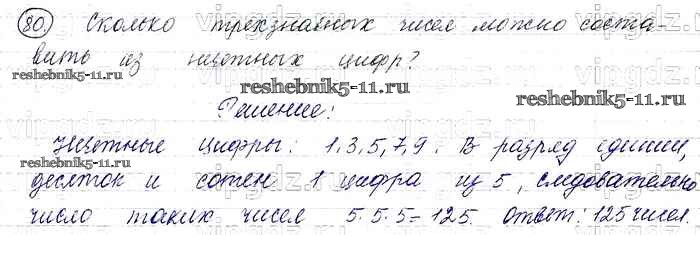 80. Сколько трехзначных чисел можно соста
вить из нечетных цифр?
reshebnik5-11.ru
reshebnik5-11.ru
reshebnik5-11.ru
Решение:
Нечетные цифры: 1,3,5,7,9. В разряд единиц,
reshebnik5-11.ru
десяток и сотен 1 цифра из 5, следовательно
число таких чисел 5·5·5=125. Ответ: 125 чисел.